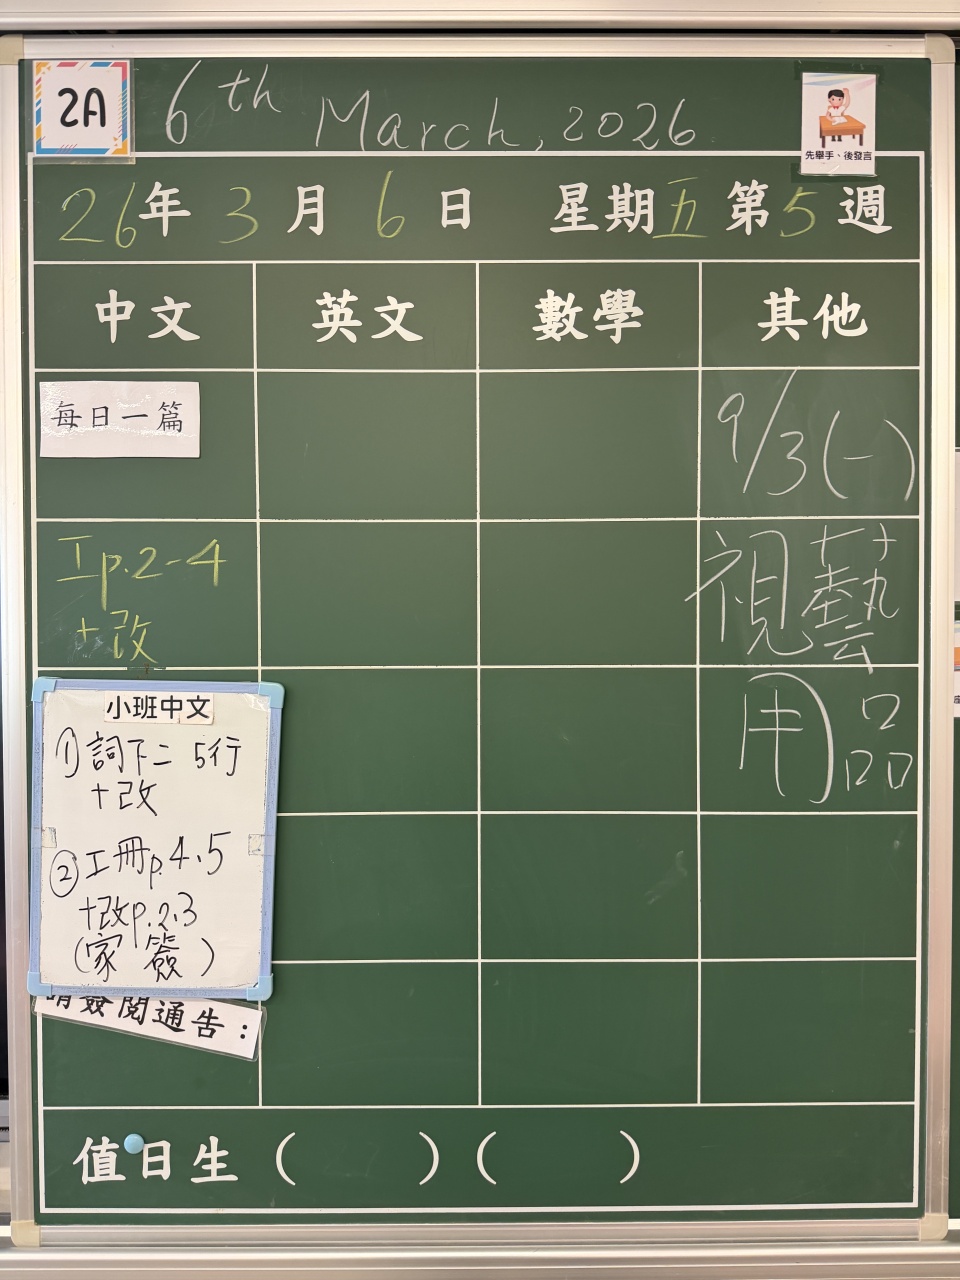 2A
6th March, 2026
先舉手、後發言
26年3月6日 星期五第5週
中文 英文 數學 其他
每日一篇
9/3(一)
工p.2-4
+改
視藝
用品
小班中文
1) 詞下二 5行
+改
② 工冊p.4、5
+改p.2、3
(家簽)
請簽閱通告:
值日生 ( ) ( )